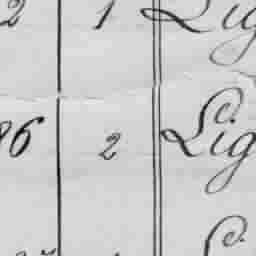 2 1 Lig
86 2 Lig